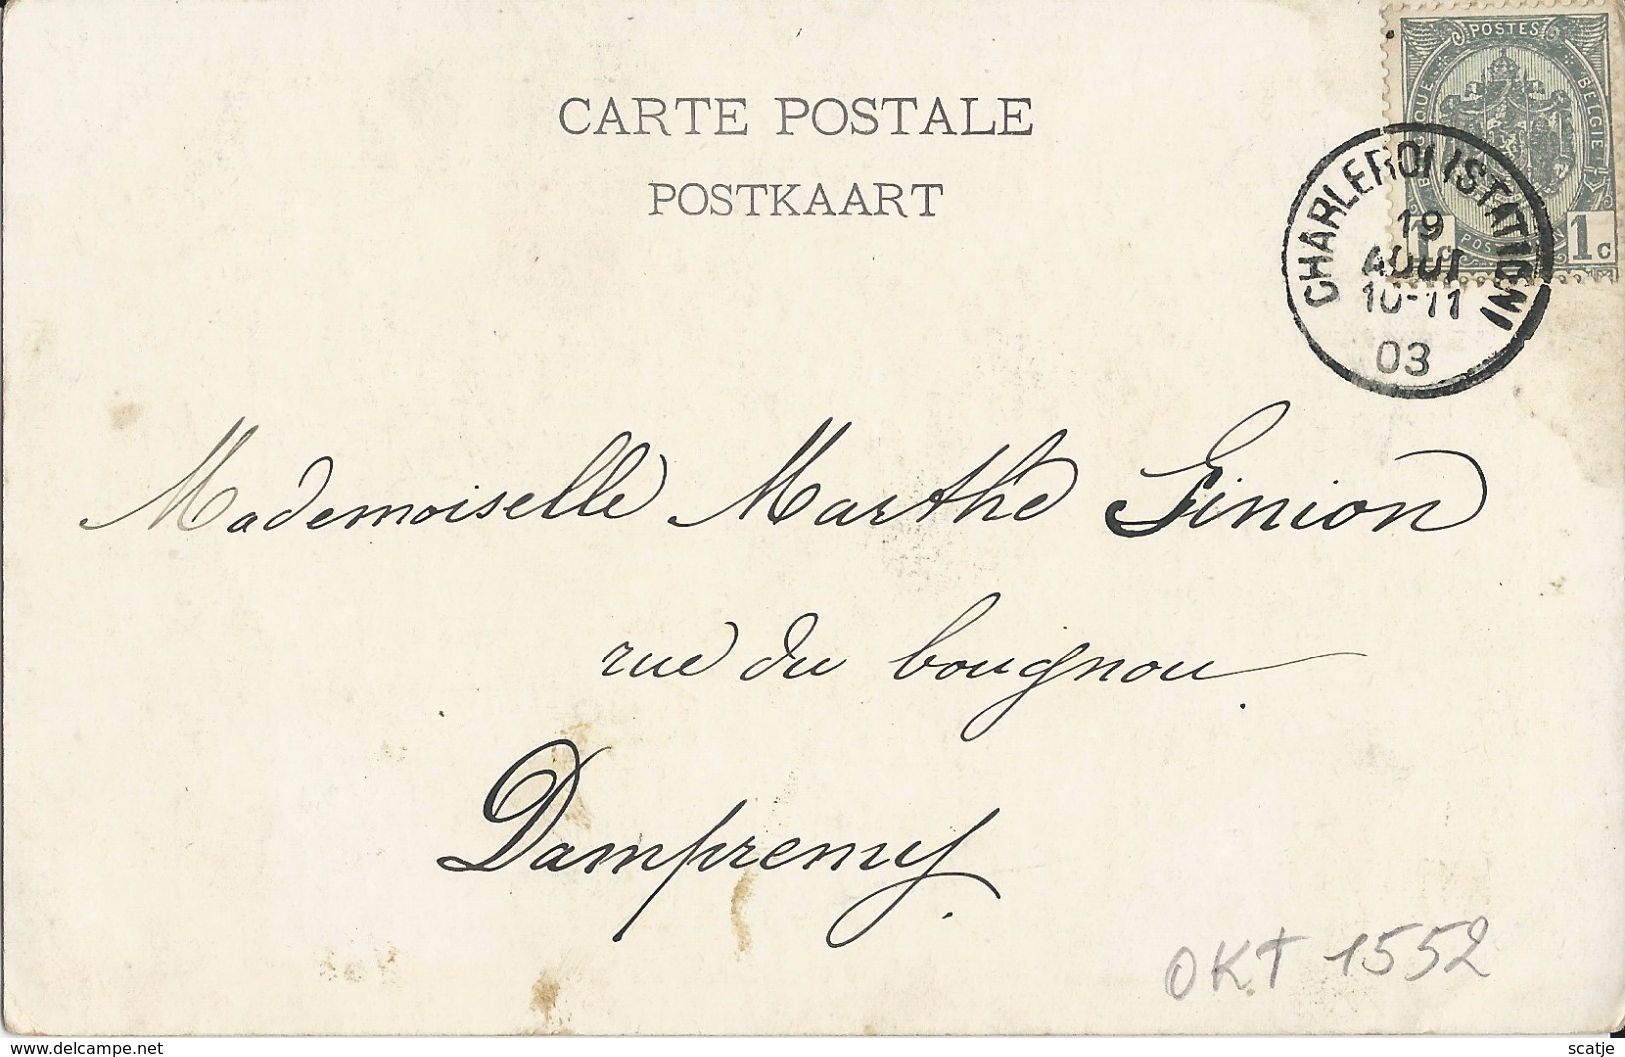 POSTES
BELGIQUE BELGIE
1c 1c
CARTE POSTALE
POSTKAART
CHARLEROI (STATION)
19
AOUT
10-11
03
Mademoiselle Marthe Ginion
rue du bougnou.
Dampremy.
OKT 1552
delcampe.net
scatje